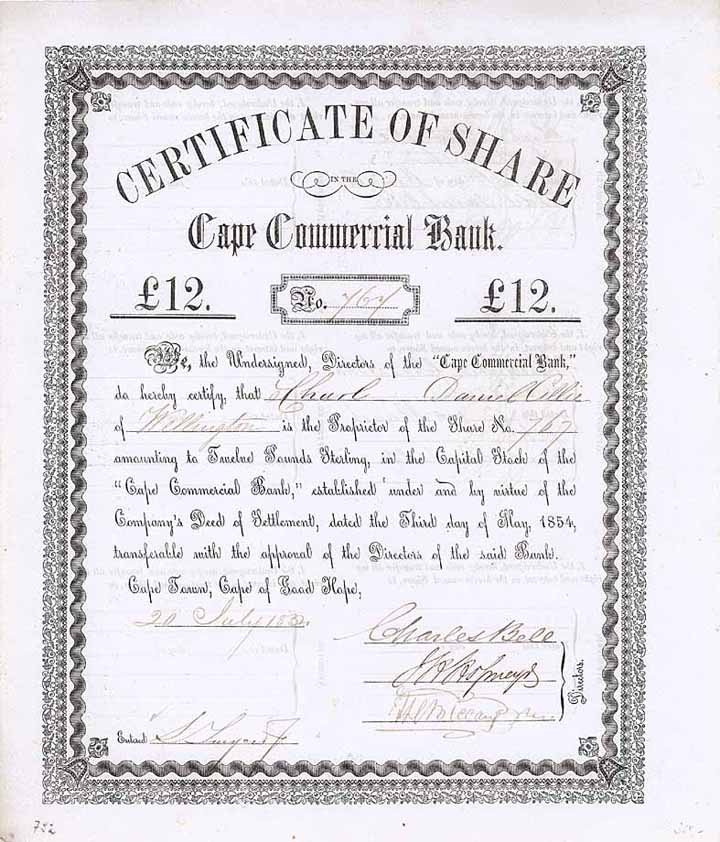 CERTIFICATE OF SHARE
IN THE
Cape Commercial Bank.
£12. No. 767 £12.
We, the Undersigned, Directors of the "Cape Commercial Bank,"
do hereby certify, that Daniel
of Wellington is the Proprietor of the Share No. 767
amounting to Twelve Pounds Sterling, in the Capital Stock of the
"Cape Commercial Bank," established under and by virtue of the
Company's Deed of Settlement, dated the Third day of May, 1854,
transferable with the approval of the Directors of the said Bank.
Cape Town, Cape of Good Hope,
20 July
Charles Bell
Directors.
Entered